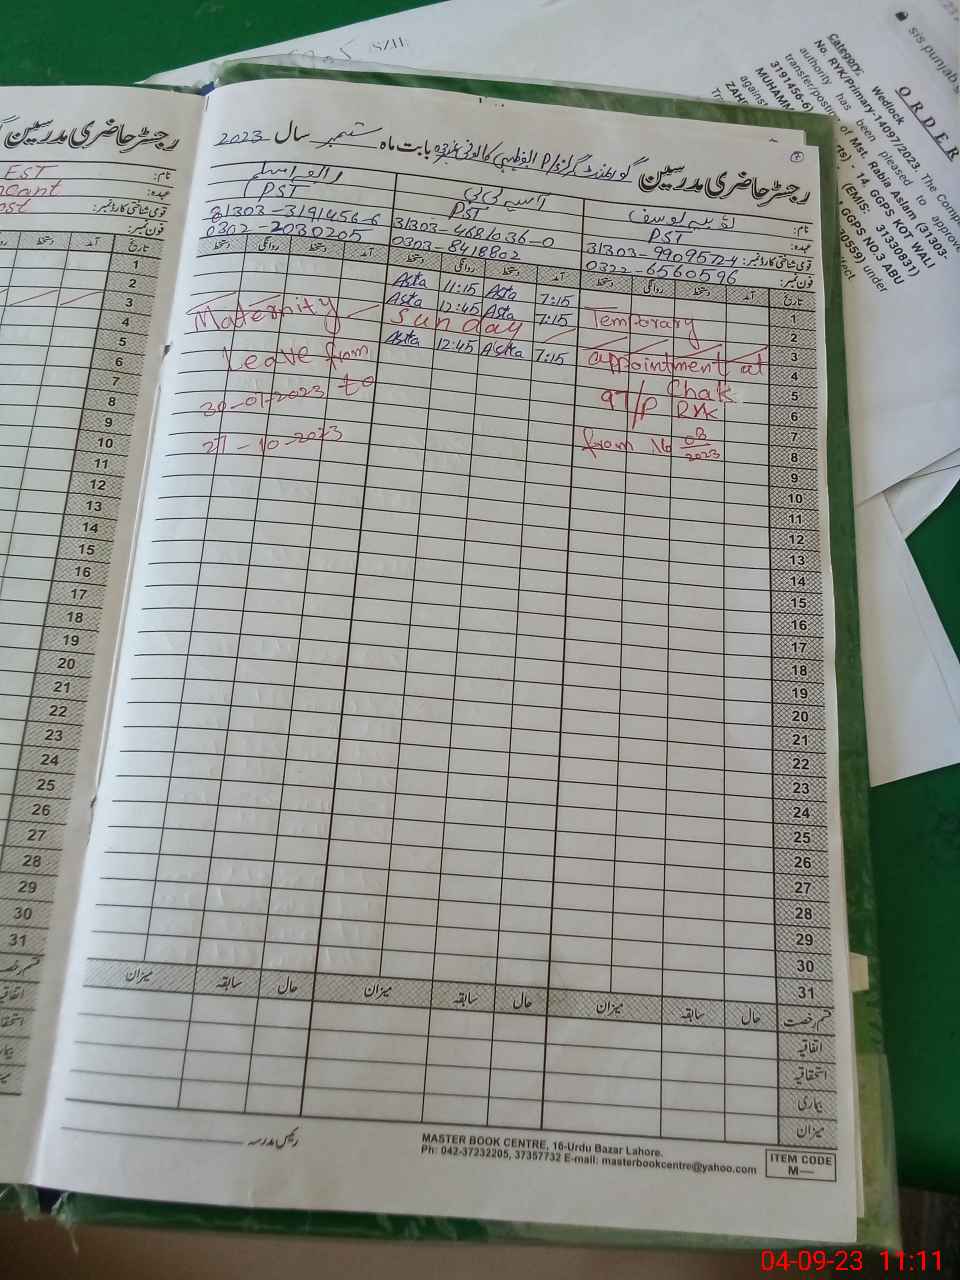 sis.punjab.s
ORDER
Category: Wedlock
No. RYK/Primary-14097/2023. The Comp
authority has been pleased to approve
transfer/posting of Mst. Rabia Aslam (31303-
3191456-6)
14, GGPS KOT WALI
MUHAMM
(EMIS: 31330831)
against
GGPS NO.3 ABU
ZAH
30559) under
رجسٹر حاضری مدرسین
رجسٹر حاضری مدرسین گورنمنٹ گرلز P/ ابوظہبی کالونی بابت ماہ ستمبر سال 2023
نام: EST
عہدہ: Vacant
قومی شناختی کارڈ نمبر: Post
فون نمبر:
نام: یوسف آسیہ بی بی رابعہ اسلم
عہدہ: PST PST PST
قومی شناختی کارڈ نمبر: 31303-9909572-4 31303-4681036-0 31303-3191456-6
فون نمبر: 0322-6560596 0303-8418802 0302-2030205
تاریخ آمد دستخط روانگی دستخط آمد دستخط روانگی دستخط آمد دستخط روانگی دستخط
تاریخ آمد دستخط
1 7:15 Asia 11:15 Asia
2 Temporary 7:15 Asia 12:45 Asia Maternity
3 Sunday
4 appointment at 7:15 Asia 12:45 Asia Leave from
5 Chak
6 97/P RYK 30-01-2023 to
7 from 16 03 2023 27-10-2023
8
9
10
11
12
13
14
15
16
17
18
19
20
21
22
23
24
25
26
27
28
29
30
31
1
2
3
4
5
6
7
8
9
10
11
12
13
14
15
16
17
18
19
20
21
22
23
24
25
26
27
28
29
30
31
قسم رخصت حال سابقہ میزان حال سابقہ میزان حال سابقہ میزان
اتفاقیہ
استحقاقیہ
بیماری
میزان
رئیس مدرسہ
MASTER BOOK CENTRE, 16-Urdu Bazar Lahore.
Ph: 042-37232205, 37357732 E-mail: masterbookcentre@yahoo.com
ITEM CODE
M—
04-09-23 11:11